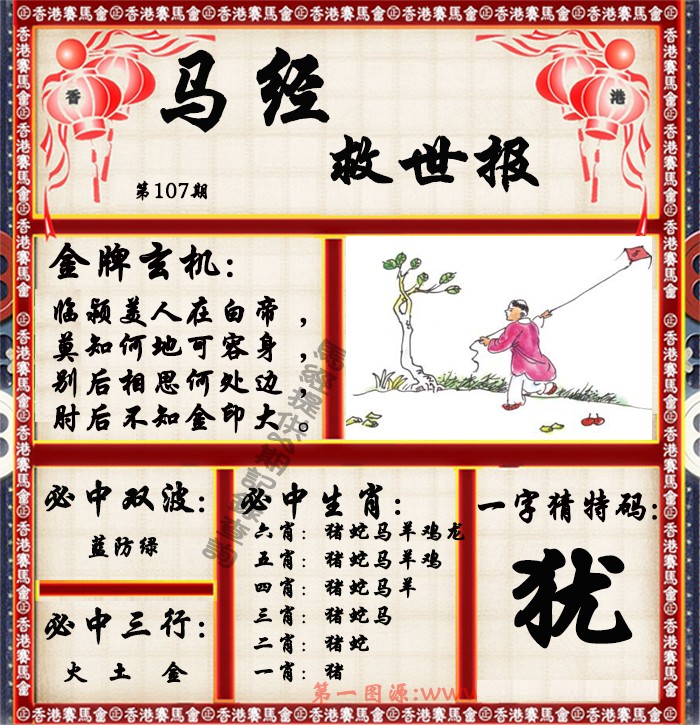 香港賽馬會
香 港
马经
救世报
第107期
金牌玄机:
临颍美人在白帝，
莫知何地可容身，
别后相思何处边，
肘后不知金印大。
必中双波:
蓝防绿
必中三行:
火 土 金
必中生肖:
六肖: 猪蛇马羊鸡龙
五肖: 猪蛇马羊鸡
四肖: 猪蛇马羊
三肖: 猪蛇马
二肖: 猪蛇
一肖: 猪
一字猜特码:
犹
第一图源:www